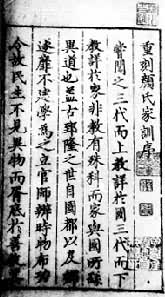 重刻顏氏家訓序
嘗聞之三代而上教詳於國三代而下
教詳於家非教有殊科而家與國所繇
異道也蓋古郅隆之世自國都以及鄉
遂靡不建學為之立官師辨時物布功
令故民生不見異物而胥底於善